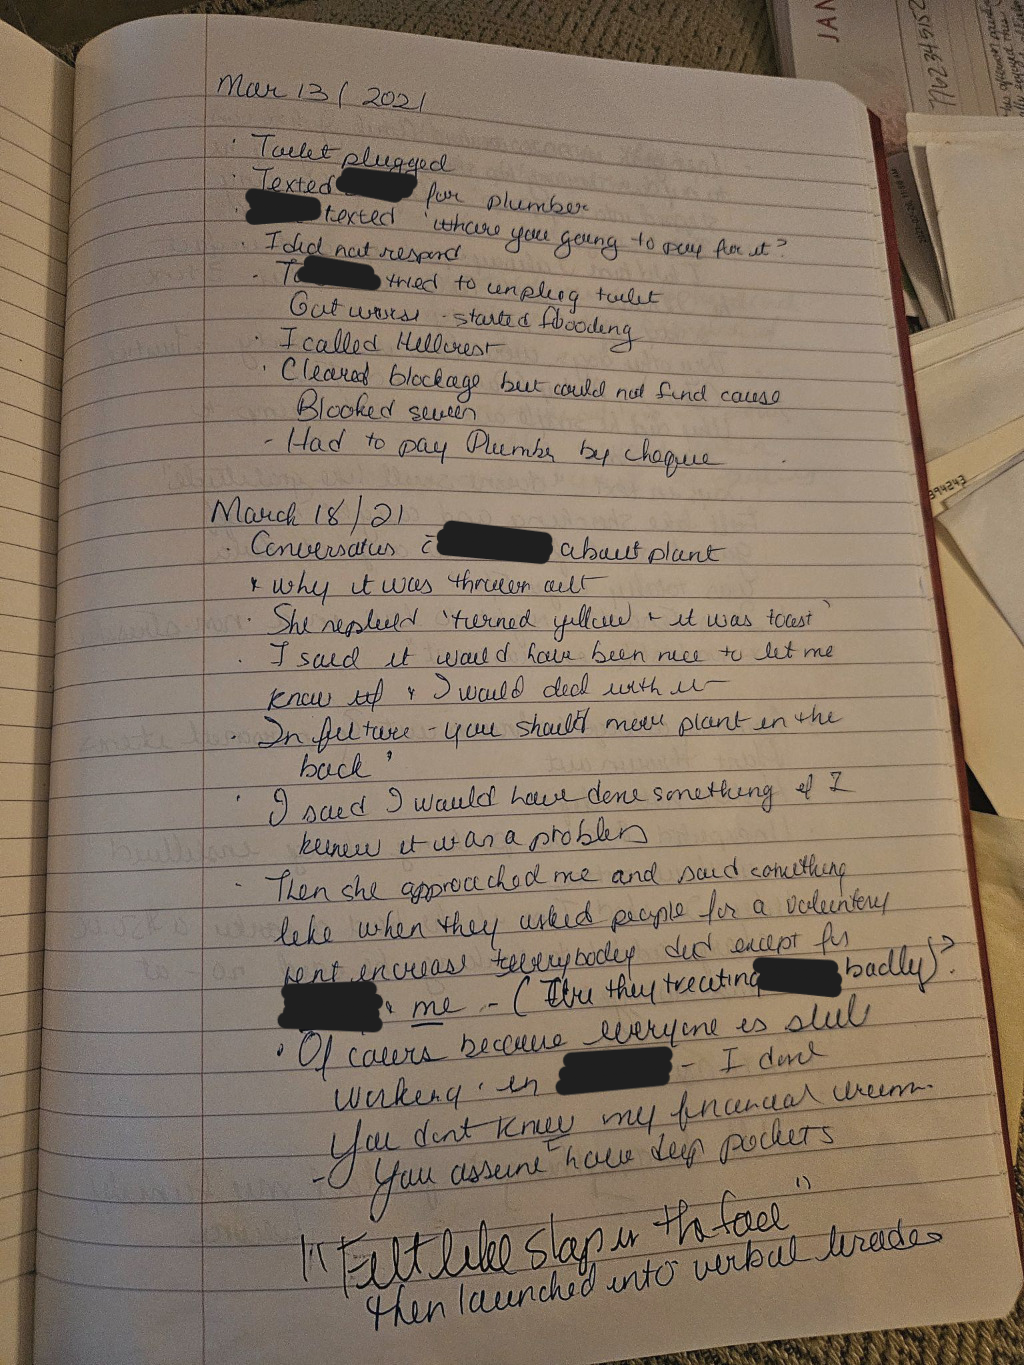 Mar 13/ 2021
· Toilet plugged
· Texted for plumber
· texted 'whare you going to pay for it?
· I did not respond
· T tried to unplug toilet
Got worse - started flooding
· I called Hillcrest
· Cleared blockage but could not find cause
Blooked sewer
- Had to pay Plumber by cheque
March 18/21
· Conversatus c̄ about plant
* why it was thrown out
· She replied 'turned yellow + it was toast'
· I said it would have been nice to let me
know & I would deal with it
· In future - you should move plant in the
back'
· I said I would have done something if I
knew it was a problem
· Then she approached me and said something
like when they asked people for a voluntary
rent increase everybody did except for
& me - ( they treating badly)?
· Of cours because everyone is still
working. in - I dont
You dont know my financial
- You assume I have deep pockets
"Felt like slap in the face"
then launched into verbal tirade
JAN
7762345152
394243